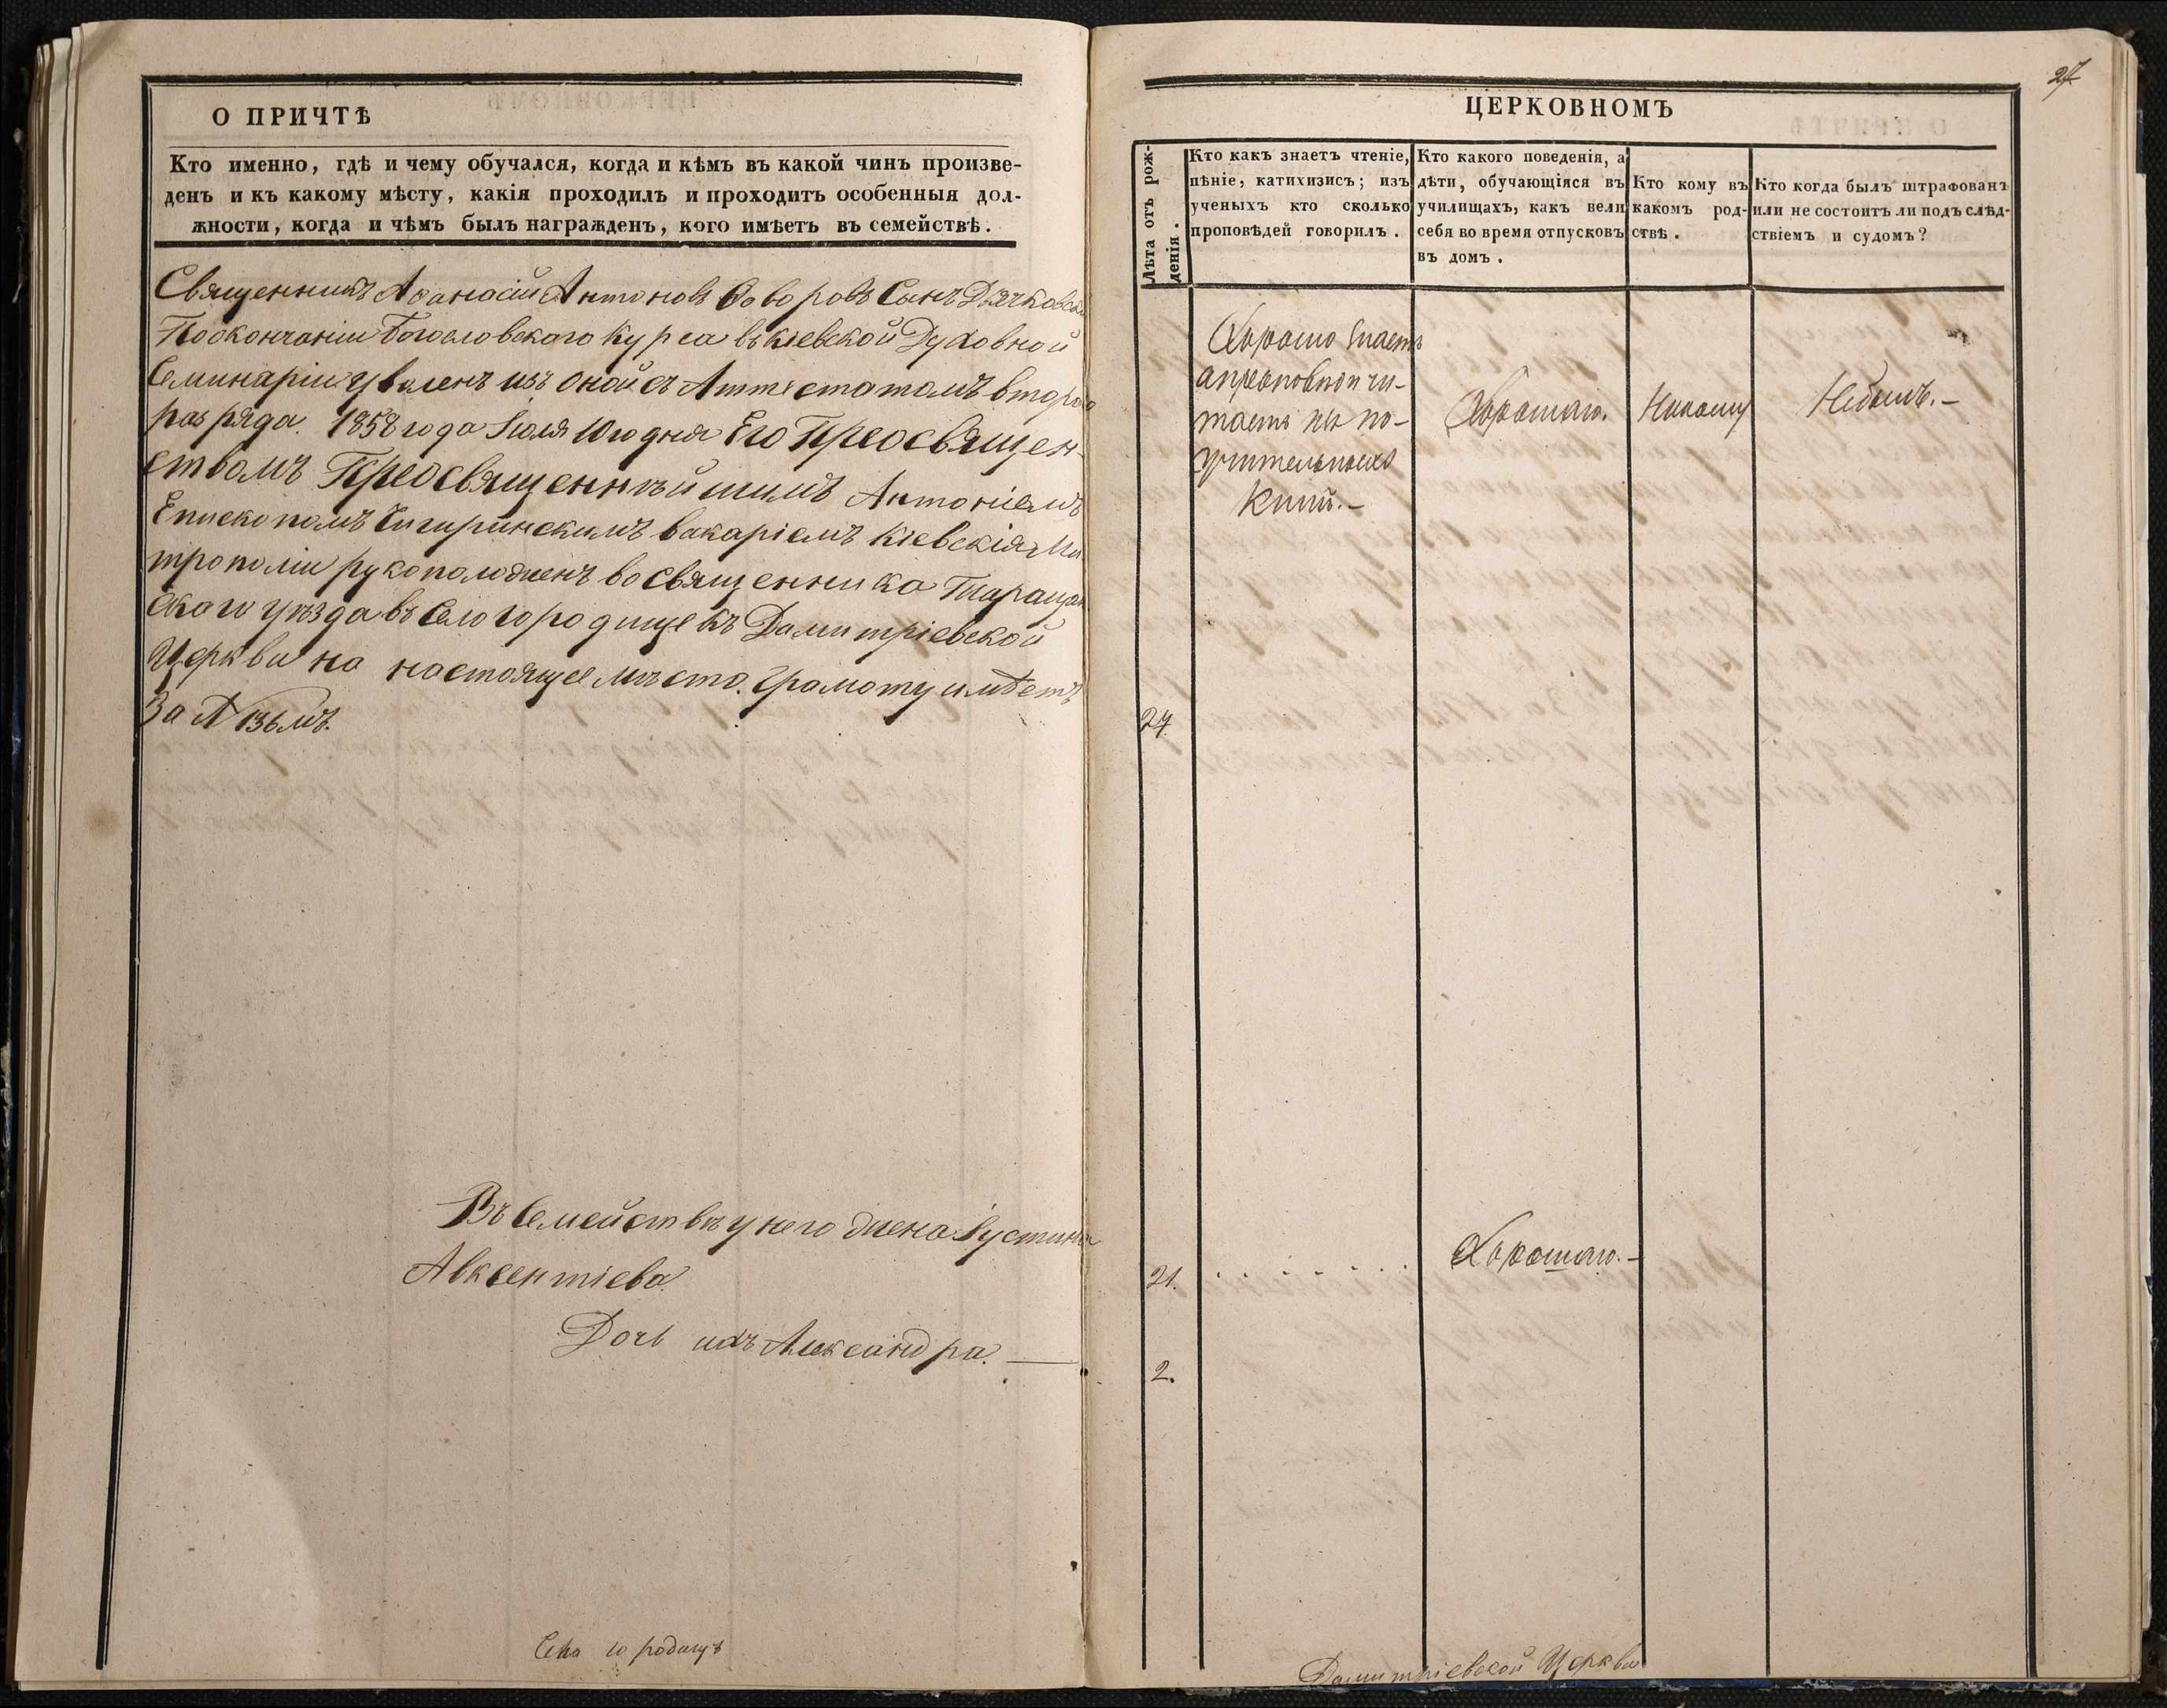 О ПРИЧТѢ
Кто именно, гдѣ и чему обучался, когда и кѣмъ въ какой чинъ произве-
денъ и къ какому мѣсту, какія проходилъ и проходитъ особенныя дол-
жности, когда и чѣмъ былъ награжденъ, кого имѣетъ въ семействѣ.
Священникъ Аѳанасій Антоновъ Ѳаворовъ Сынъ Дьячковскій
По окончаніи Богословскаго Курса въ Кіевской Духовной
Семинаріи уволенъ изъ оной съ Аттестатомъ втораго
разряда. 1858 года Іюля 10 го дня Его Преосвящен-
ствомъ Преосвященнѣйшимъ Антоніемъ
Епископомъ Чигиринскимъ Викаріемъ Кіевскія Ми
трополіи рукоположенъ во Священника Таращан
скаго уѣзда въ Село Городище къ Димитріевской
Церкви на настоящее мѣсто. Грамоту имѣетъ
За №
Въ Семействѣ у него жена Іустина
Авксентіева
Дочь ихъ Александра. —
Села Городищъ
27
ЦЕРКОВНОМЪ
Лѣта отъ рож-
денія.
Кто какъ знаетъ чтеніе,
пѣніе, катихизисъ; изъ
ученыхъ кто сколько
проповѣдей говорилъ.
Кто какого поведенія, а
дѣти, обучающіяся въ
училищахъ, какъ вели
себя во время отпусковъ
въ домъ.
Кто кому въ
какомъ род-
ствѣ.
Кто когда былъ штрафованъ
или не состоитъ ли подъ слѣд-
ствіемъ и судомъ?
Хорошо знаетъ
а проповѣди чи-
таетъ изъ по-
учительныхъ
Книгъ. —
Хорошаго.
Никому
Не былъ. —
27
21.
Хорошаго. —
2.
Димитріевской Церкви